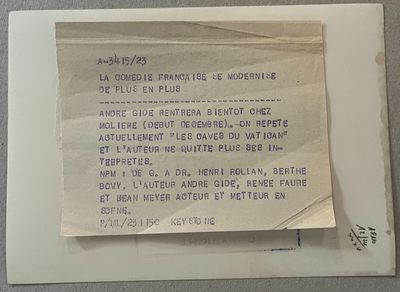 A-3415/23
LA COMEDIE FRANCAISE SE MODERNISE
DE PLUS EN PLUS
ANDRE GIDE RENTRERA BIENTOT CHEZ
MOLIERE (DEBUT DECEMBRE). ON REPETE
ACTUELLEMENT "LES CAVES DU VATICAN"
ET L'AUTEUR NE QUITTE PLUS SES IN-
TERPRETES.
NPM : DE G. A DR. HENRI ROLLAN, BERTHE
BOVY, L'AUTEUR ANDRE GIDE, RENEE FAURE
ET JEAN MEYER ACTEUR ET METTEUR EN
SCENE.
KEYSTONE